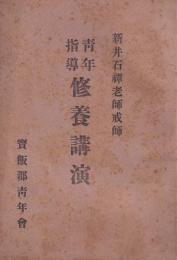 新井石禪老師戒師
青年
指導
修養講演
寶飯郡青年會